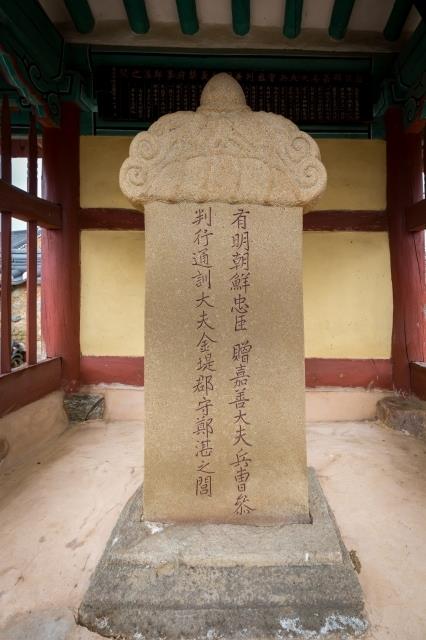 有明朝鮮忠臣 贈嘉善大夫兵曹參
判行通訓大夫金堤郡守鄭湛之閭